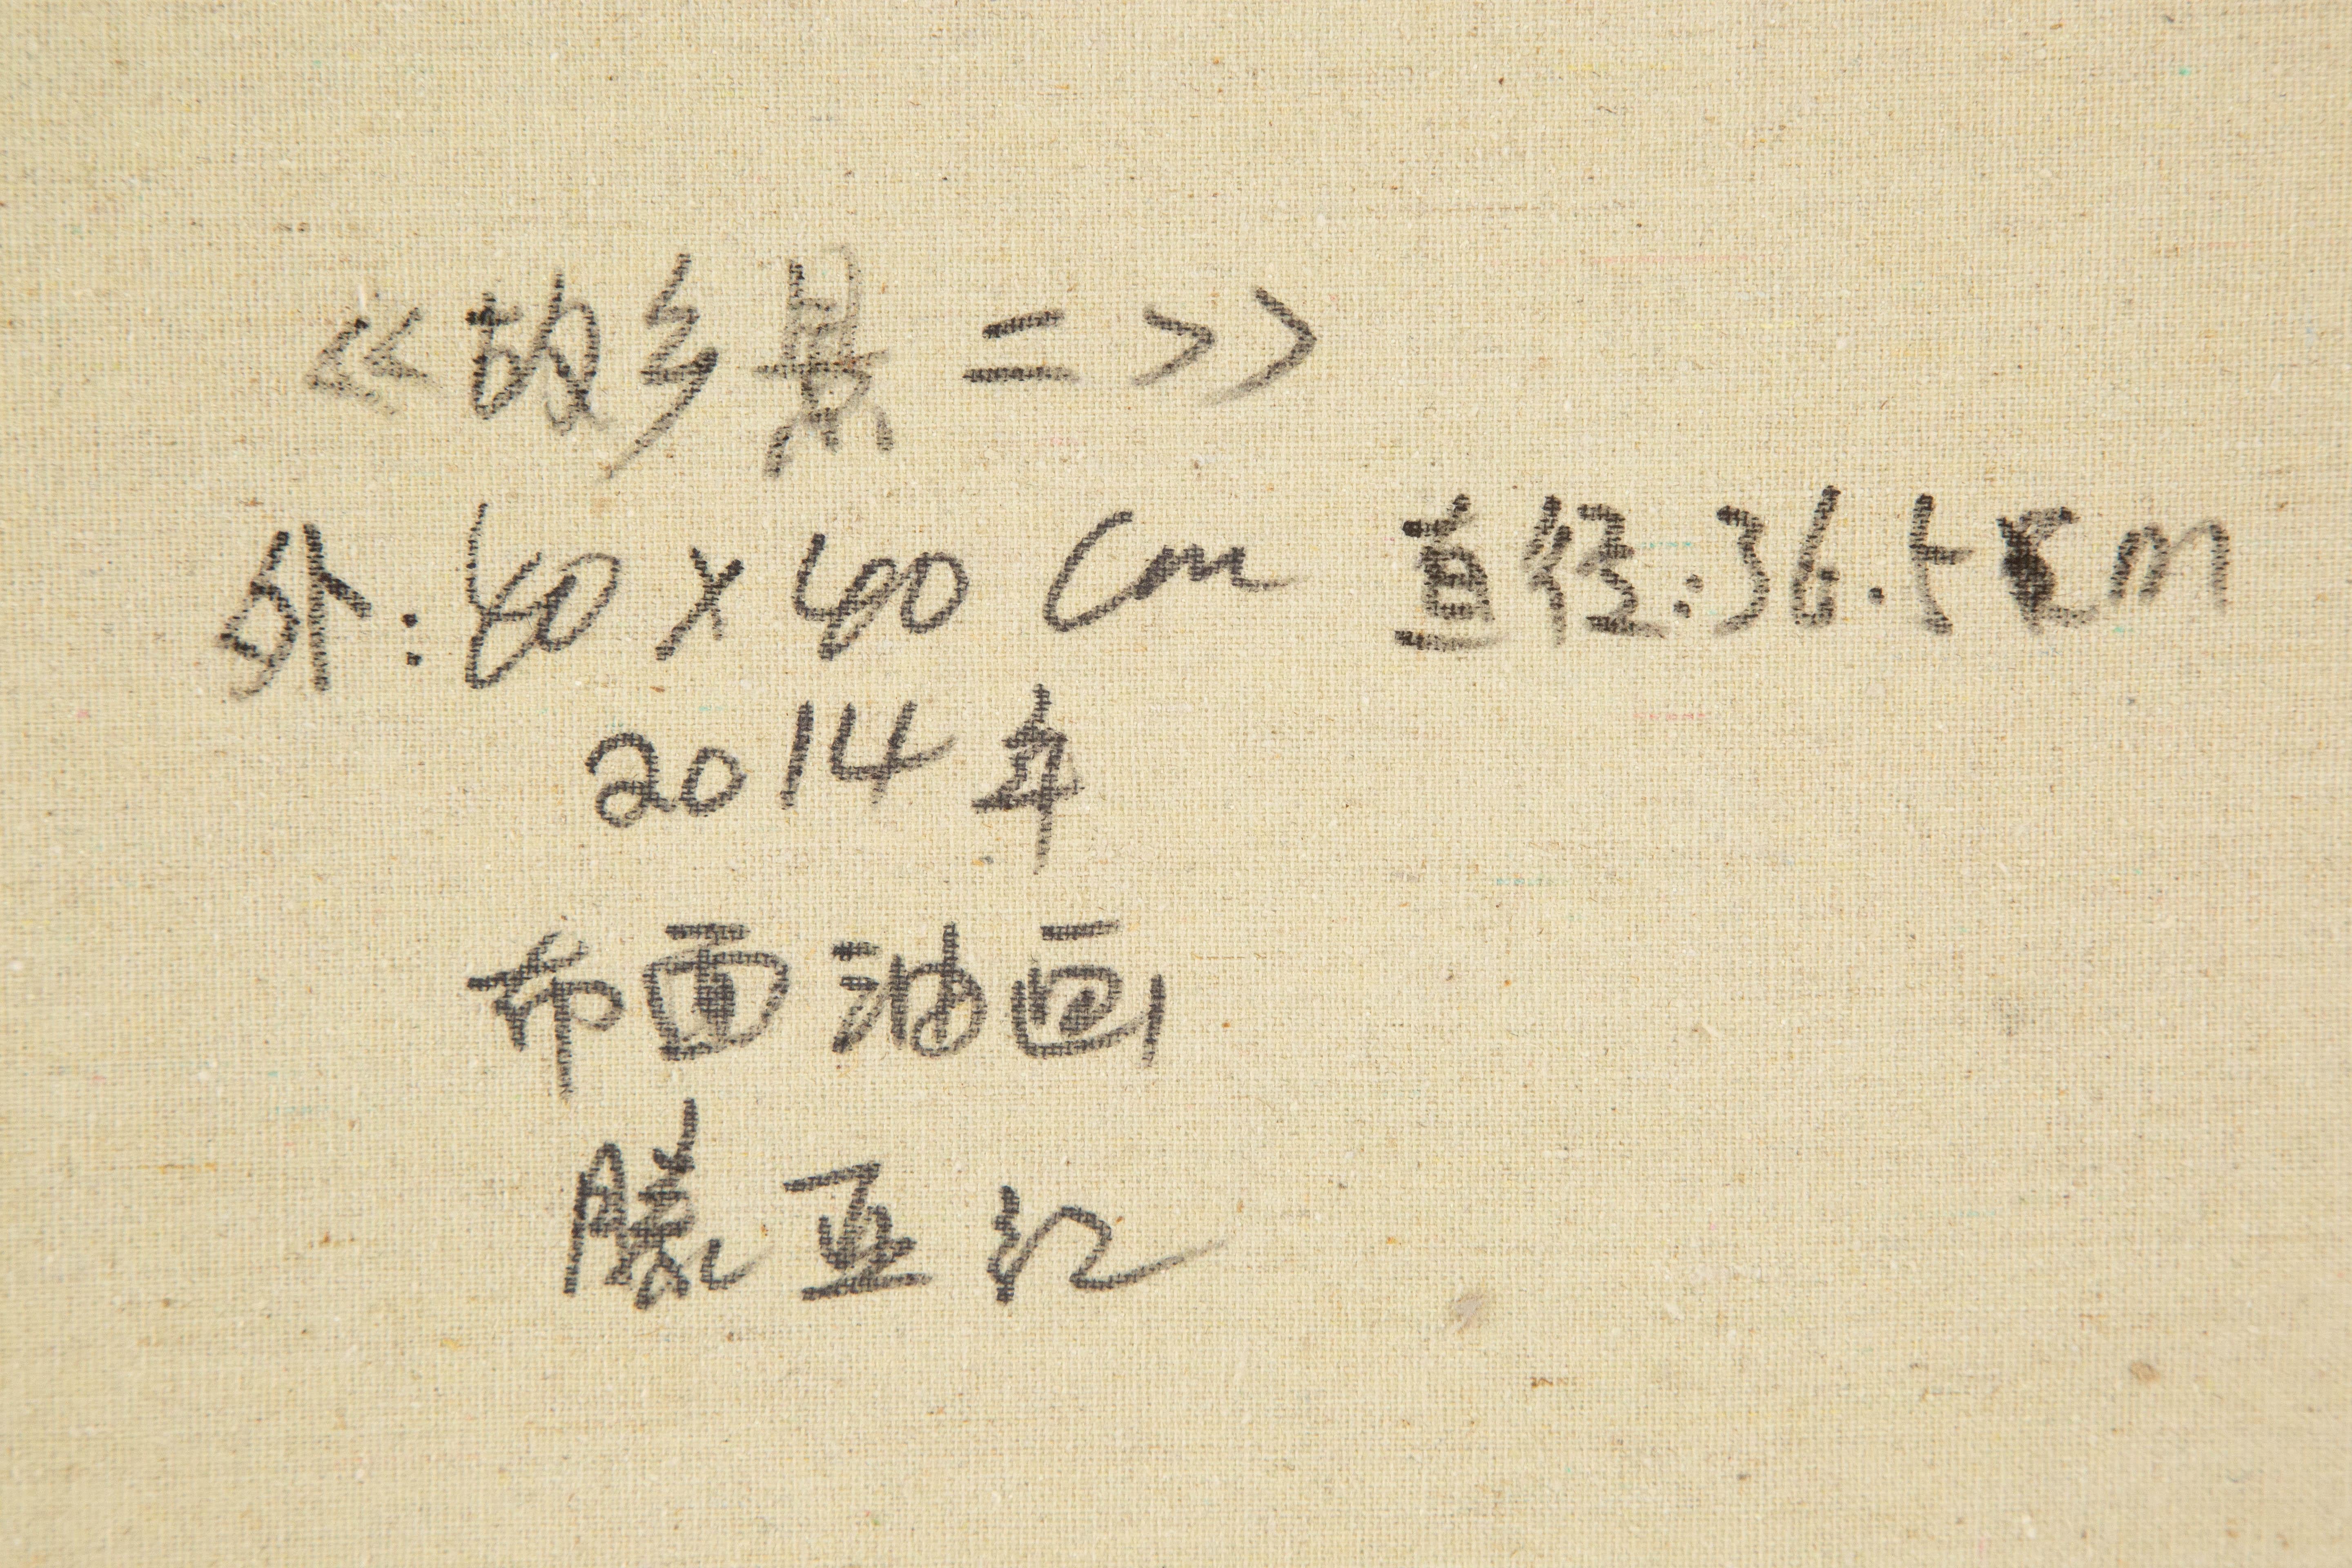 《故乡 二》
外:40×40 cm 直径:36.5cm
2014年
布面油画
滕亚